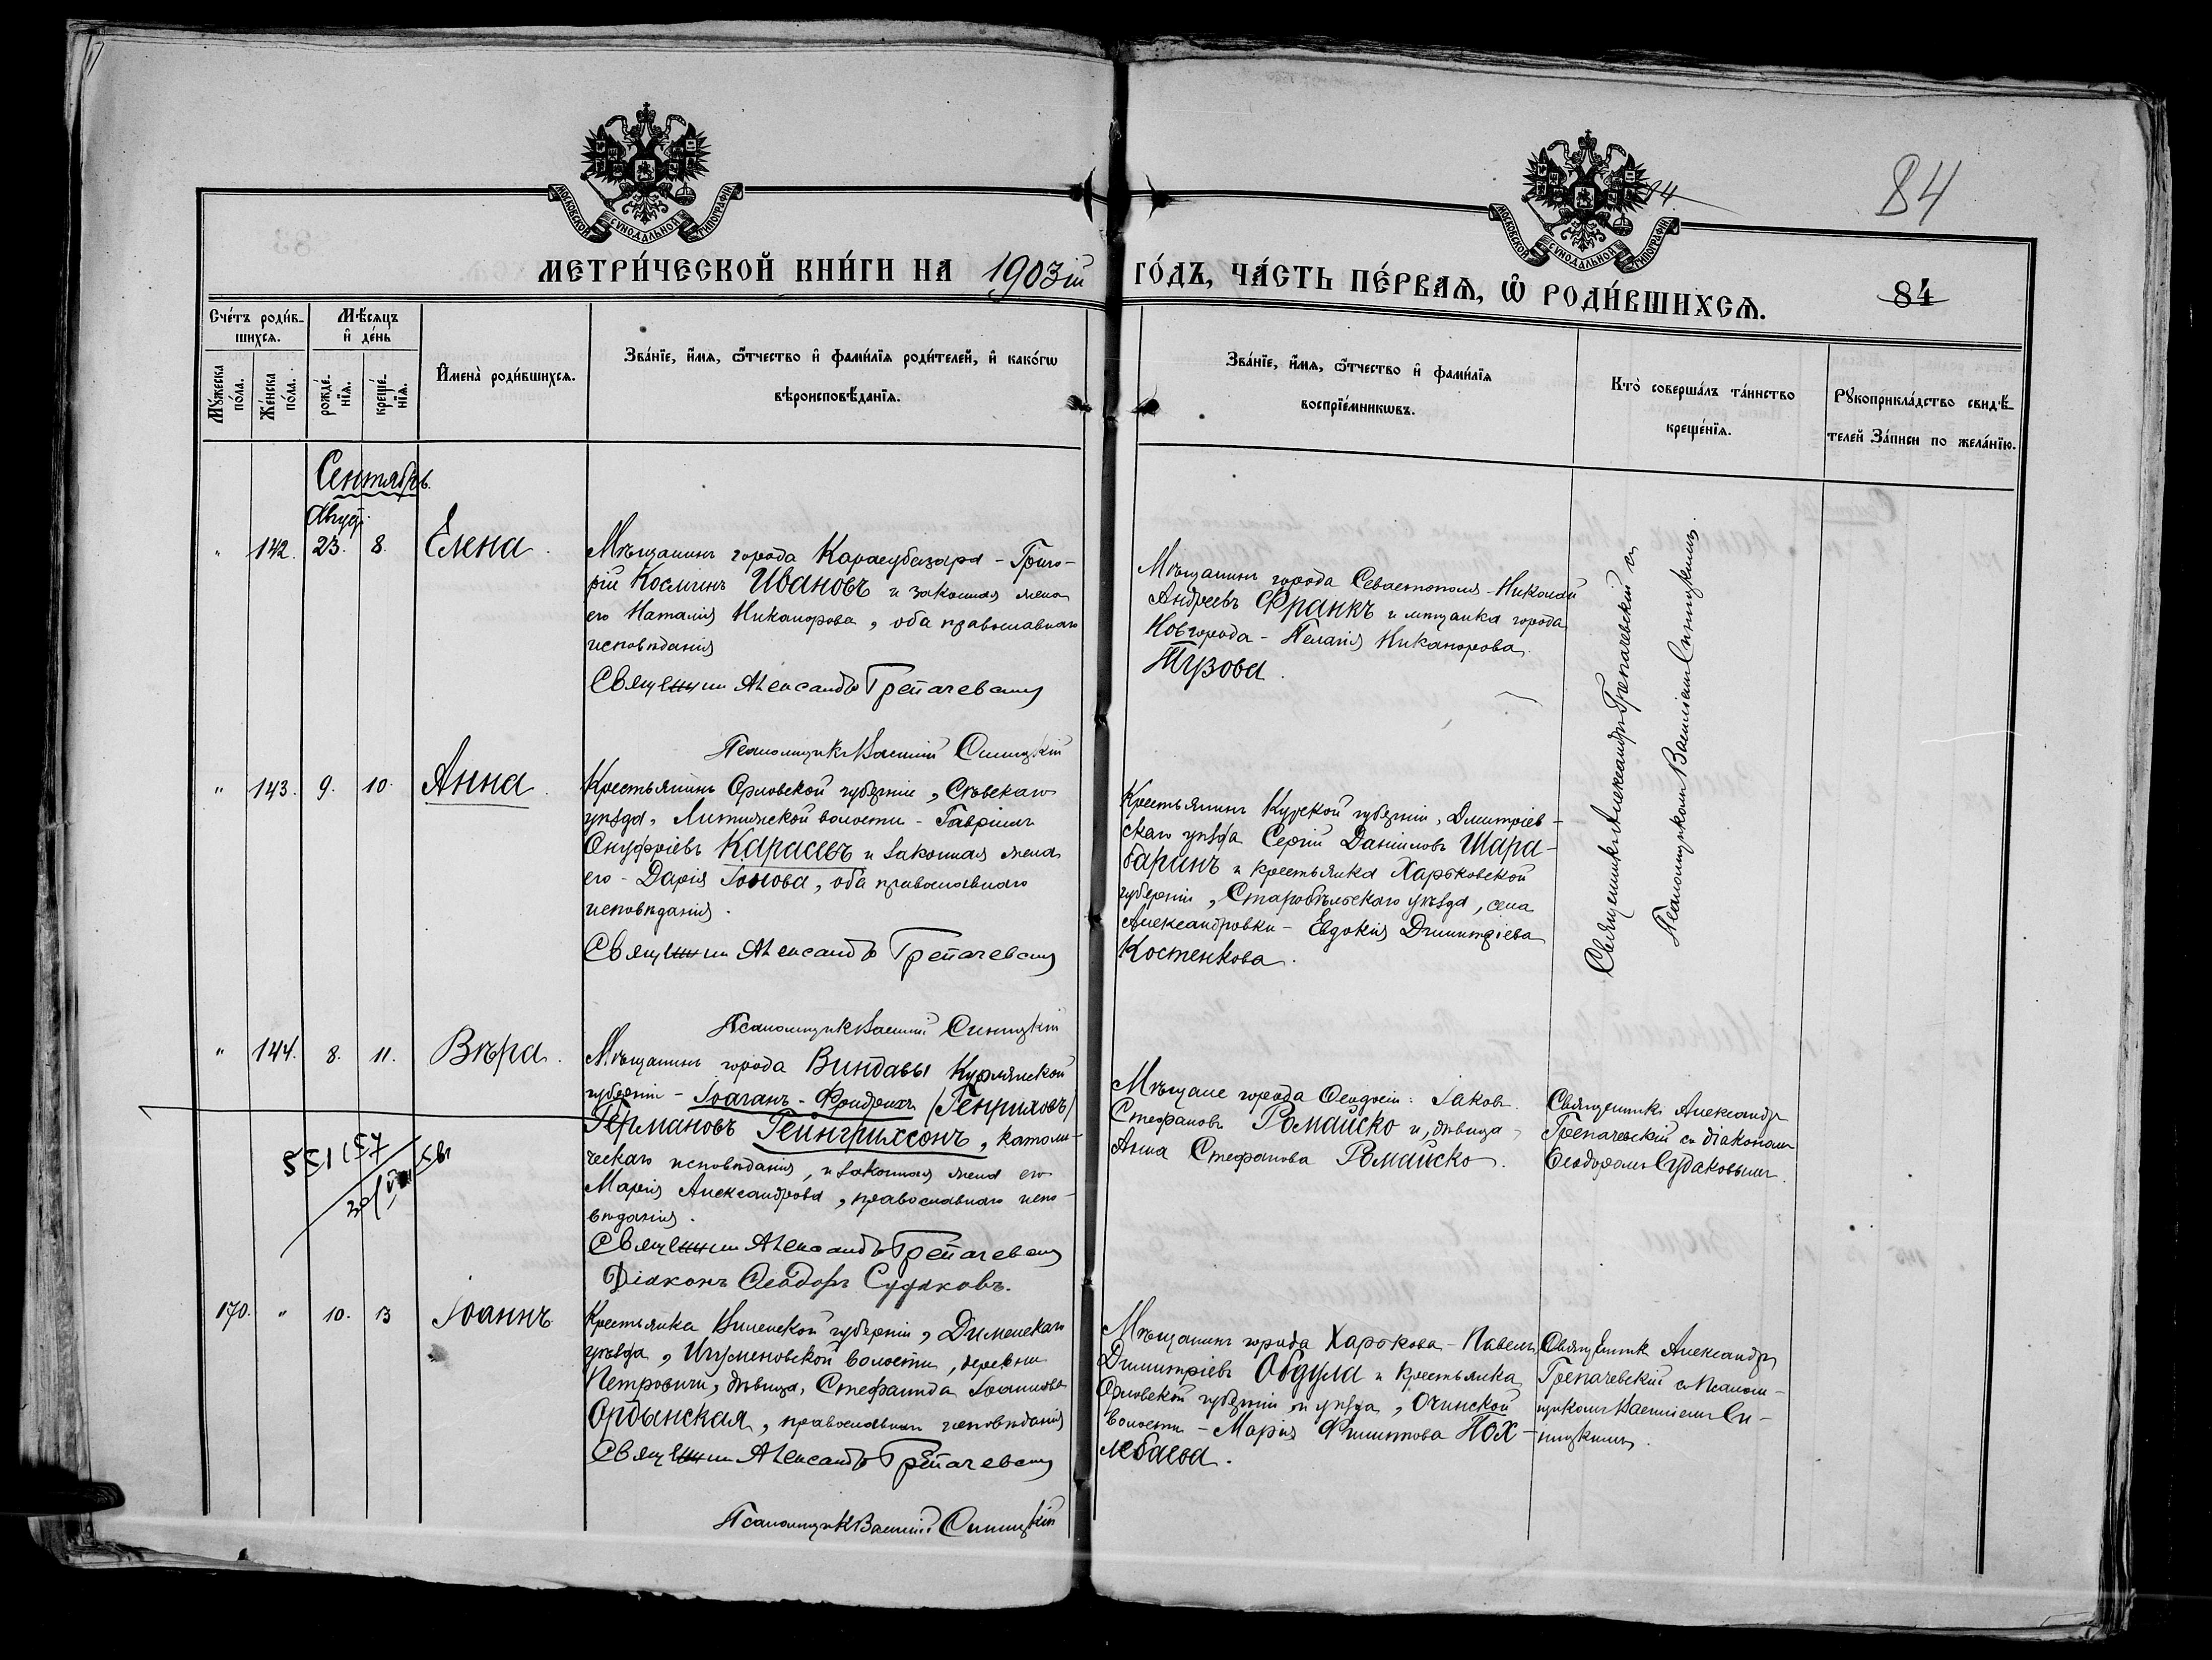 84
МОСКОВСКОЙ СѴНОДАЛЬНОЙ ТИПОГРАФІИ
МОСКОВСКОЙ СѴНОДАЛЬНОЙ ТИПОГРАФІИ
МЕТРИ́ЧЕСКОЙ КНИ́ГИ НА 1903ій ГО́ДЪ, ЧА́СТЬ ПЕ́РВАѦ, Ѡ҆ РОДИ́ВШИХСѦ.
84
Сче́тъ роди́в-
шихсѧ.
Мѣ́сѧцъ
и҆ де́нь
Мꙋ́жеска
по́ла.
Же́нска
по́ла.
рожде́-
нїѧ.
креще́-
нїѧ.
И҆мена̀ роди́вшихсѧ.
Зва́нїе, и҆́мѧ, ѻ҆́тчество и҆ фами́лїѧ роди́телей, и҆ како́гѡ
вѣроисповѣ́данїѧ.
Зва́нїе, и҆́мѧ, ѻ҆́тчество и҆ фами́лїѧ
воспрїе́мникѡвъ.
Кто̀ соверша́лъ та́инство
креще́нїѧ.
Рꙋкоприкла́дство свидѣ́-
телей за́писи по жела́нїю.
Сентябрь.
Август.
" 142. 23. 8. Елена.
Мѣщанинъ города Карасубазара - Григо-
рій Косминъ Ивановъ и законная жена
его Наталія Никанорова, оба православнаго
исповѣданія
Священникъ Александръ Грепачевскій
Псаломщикъ Василій Синицкій
Мѣщанинъ города Севастополя - Николай
Андреевъ Франкъ и мѣщанка города
Новгорода - Пелагія Никанорова
Тузова.
Священникъ Александръ Грепачевскій съ
Псаломщикомъ Василіемъ Синицкимъ
" 143. 9. 10. Анна.
Крестьянинъ Орловской губерніи, Сѣвскаго
уѣзда, Литижской волости - Гавріилъ
Онуфріевъ Карасевъ и законная жена
его - Дарія Іонова, оба православнаго
исповѣданія.
Священникъ Александръ Грепачевскій
Псаломщикъ Василій Синицкій
Крестьянинъ Курской губерніи, Дмитріев-
скаго уѣзда Сергій Даніиловъ Шара-
баринъ и крестьянка Харьковской
губерніи, Старобѣльскаго уѣзда, села
Александровки - Евдокія Димитріева
Костенкова.
" 144. 8. 11. Вѣра.
Мѣщанинъ города Виндавы Курлянской
губерніи - Іоаганъ - Фридрихъ (Генриховъ)
Германовъ Гейнгрихсонъ, католи-
ческаго исповѣданія, и законная жена его
Марія Александрова, православнаго испо-
вѣданія.
Священникъ Александръ Грепачевскій
Діаконъ Ѳеодоръ Судаковъ.
Мѣщане города Ѳеодосіи: Іаковъ
Стефановъ Романско и, дѣвица,
Анна Стефанова Романско.
Священникъ Александръ
Грепачевскій съ діакономъ
Ѳеодоромъ Судаковымъ.
170. " 10. 13 Іоаннъ
Крестьянка Виленской губерніи, Дисненскаго
уѣзда, Игуменовской волости, деревни
Петровичи, дѣвица, Стефанида Іоаннова
Ордынская, православнаго исповѣданія
Священникъ Александръ Грепачевскій
Псаломщикъ Василій Синицкій
Мѣщанинъ города Харькова - Павелъ
Димитріевъ Обдула и крестьянка
Орловской губерніи и уѣзда,
волости - Марія Филиппова Пох-
лебаева.
Священникъ Александръ
Грепачевскій съ Псалом-
щикомъ Василіемъ Си-
ницкимъ.